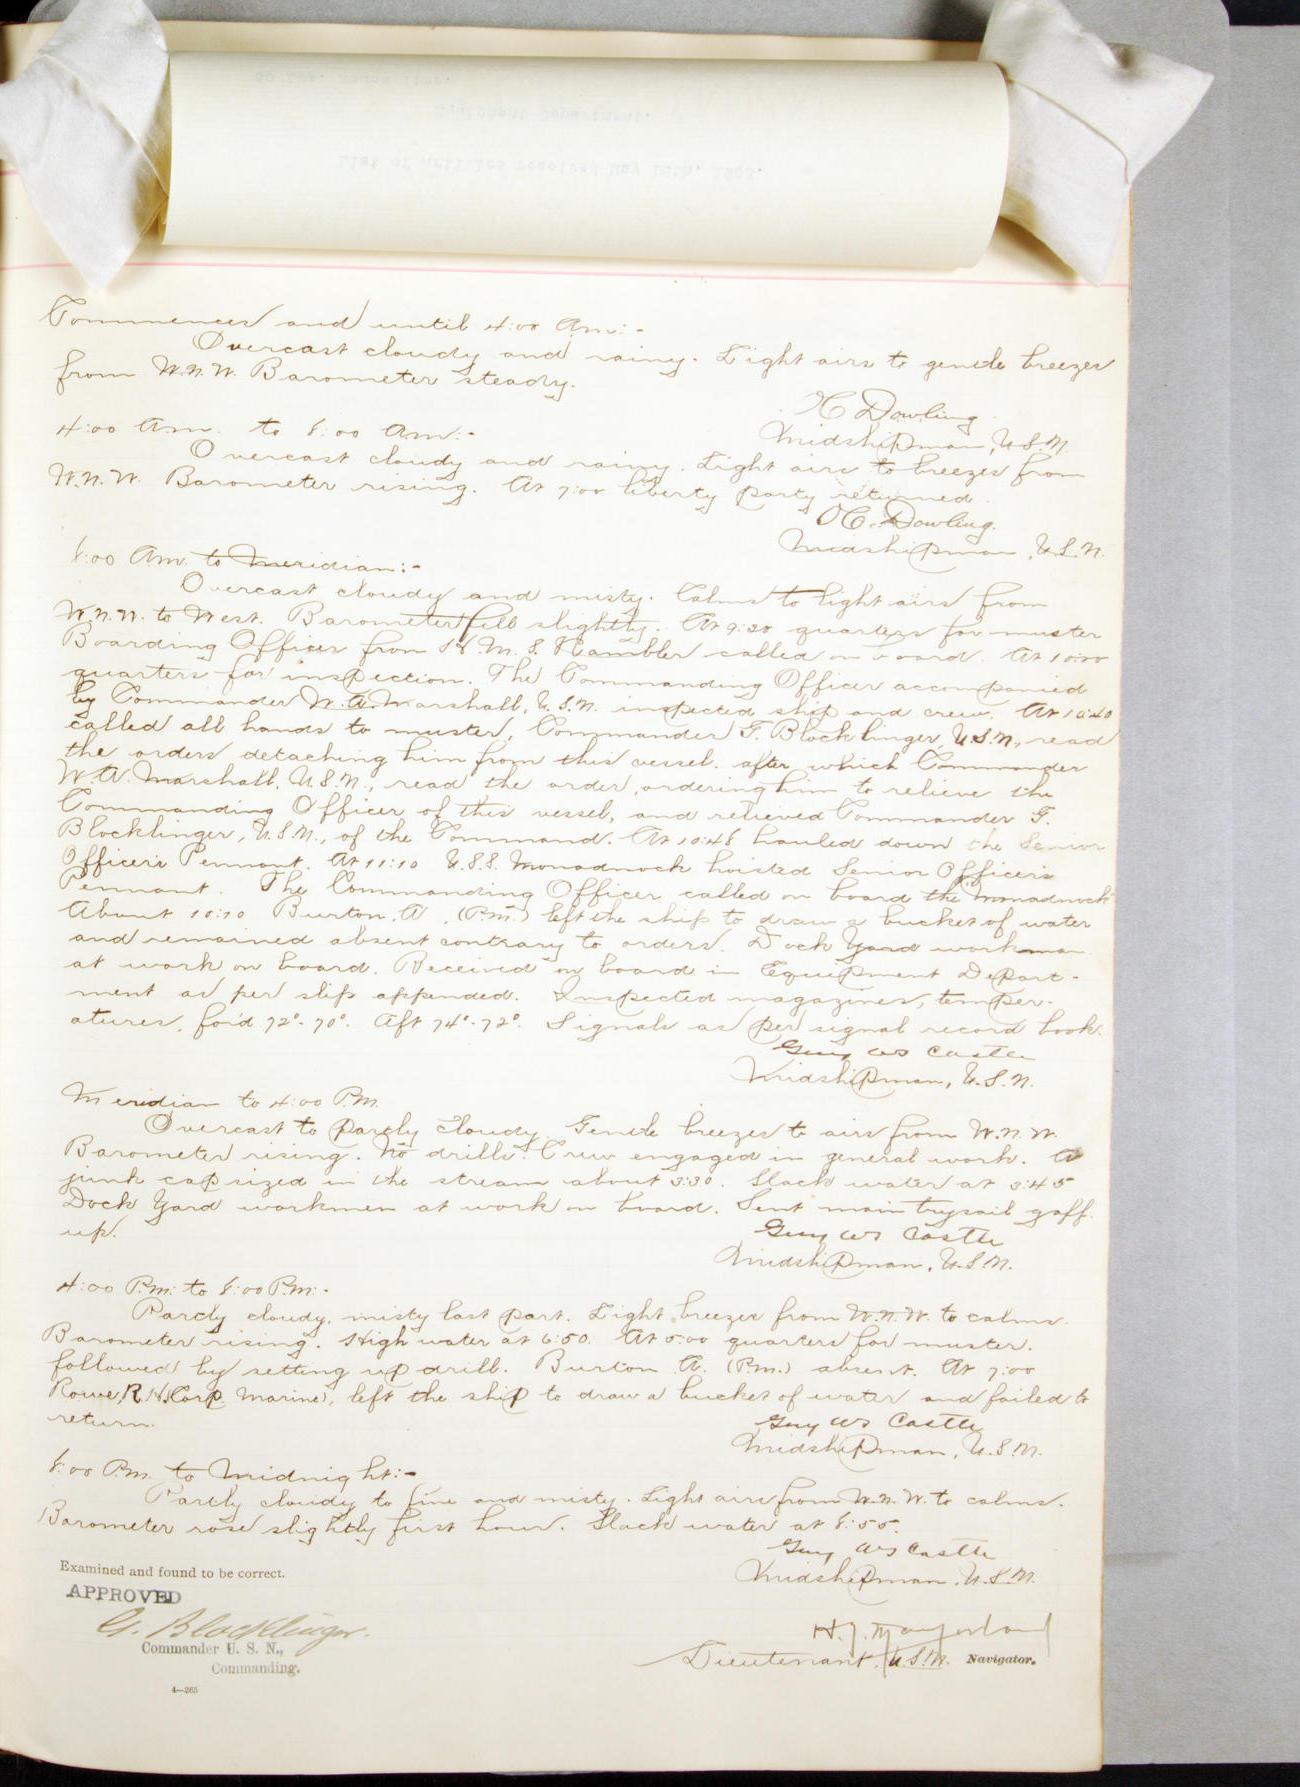 Commences and until 4:00 A.m:-
Overcast cloudy and rainy. Light airs to gentle breezes
from W.N.W. Barometer steady.
O C Dowling
Midshipman, U.S.N.
4:00 A.m. to 8:00 A.m:-
Overcast cloudy and rainy. Light airs to breezes from
W.N.W. Barometer rising. At 7:00 liberty party returned.
O C. Dowling.
Midshipman, U.S.N.
8:00 A.m. to Meridian:-
Overcast cloudy and misty. Calms to light airs from
W.N.W. to West. Barometer fell slightly. At 9:20 quarters for muster
Boarding Officer from H.M.S. Rambler called on board. At 10:00
quarters for inspection. The Commanding Officer accompanied
by Commander W.A. Marshall, U.S.N. inspected ship and crew. At 10:40
called all hands to muster, Commander G. Blocklinger, U.S.N., read
the orders detaching him from this vessel. after which Commander
W.A. Marshall, U.S.N., read the order, ordering him to relieve the
Commanding Officer of this vessel, and relieved Commander G.
Blocklinger, U.S.N., of the Command. At 10:48 hauled down the Senior
Officer's Pennant. At 11:10 U.S.S. Monadnock hoisted Senior Officer's
Pennant. The Commanding Officer called on board the Monadnock
About 10:10 Burton, A. (P.m.) left the ship to draw a bucket of water
and remained absent contrary to orders. Dock Yard workman
at work on board. Received on board in Equipment Depart-
ment as per slip appended. Inspected magazines, temper-
atures, for'd 72°-70°. Aft 74°-72°. Signals as per signal record book.
Guy W S Castle
Midshipman, U.S.N.
Meridian to 4:00 P.M.
Overcast to partly cloudy. Gentle breezes to airs from W.N.W.
Barometer rising. No drills. Crew engaged in general work. A
junk capsized in the stream about 3:30. Slack water at 3:45
Dock Yard workmen at work on board. Sent main trysail gaff
up.
Guy W S Castle
Midshipman, U.S.N.
4:00 P.m. to 8:00 P.m:-
Partly cloudy, misty last part. Light breezes from W.N.W. to calms.
Barometer rising. High water at 6:50. At 5:00 quarters for muster.
followed by setting up drill. Burton A. (P.m.) absent. At 7:00
Rowe, R.H. (Corp. Marine), left the ship to draw a bucket of water and failed to
return.
Guy W S Castle
Midshipman, U.S.N.
8:00 P.m. to Midnight:-
Partly cloudy to fine and misty. Light airs from W.N.W. to calms.
Barometer rose slightly first hour. Slack water at 8:55.
Guy W S Castle
Midshipman, U.S.N.
Examined and found to be correct.
APPROVED
G. Blocklinger.
Commander U. S. N.,
Commanding.
4—265
Lieutenant, U.S.N. Navigator.